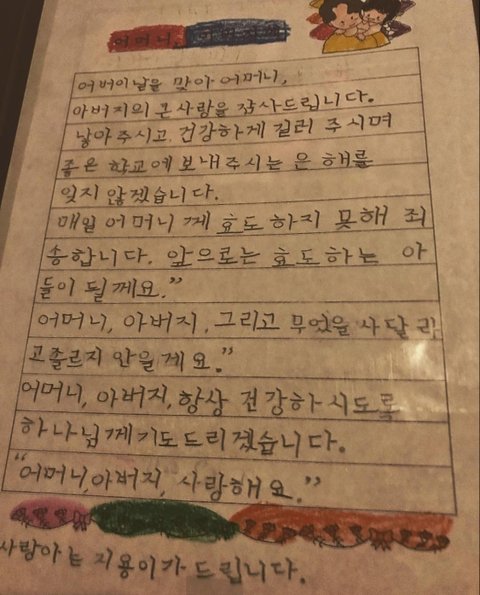 어머니,
어버이날을 맞아 어머니,
아버지의 큰 사랑을 감사드립니다.
낳아 주시고, 건강하게 길러 주시며
좋은 학교에 보내 주시는 은 혜를
잊지 않겠습니다.
매일 어머니 께 효도 하지 못해 죄
송합니다. 앞으로는 효도하는 아
들이 될께요.”
어머니, 아버지, 그리고 무엇을 사달라
고졸르지 안을게요.”
어머니, 아버지, 항상 건강하시도록
하나님께기도드리겠습니다.
“어머니,아버지, 사랑해요.”
사랑하는 지용이가 드립니다.